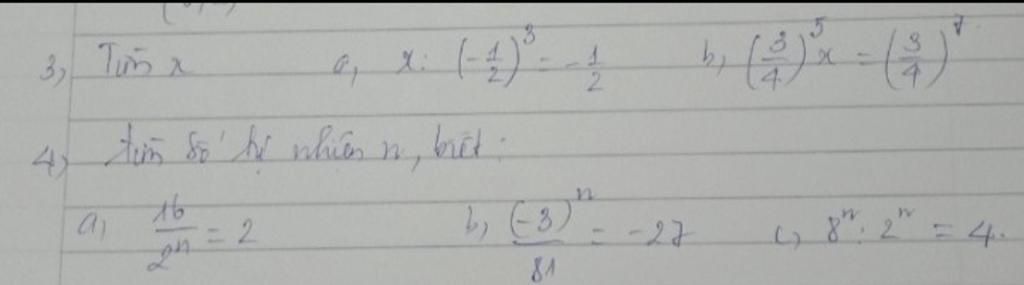 3) Tìm x a, x : (-1/2)^3 = -1/2 b, (3/4)^5 x = (3/4)^7
4) Tìm số tự nhiên n, biết:
a, 16/2^n = 2 b, (-3)^n/81 = -27 c, 8^n : 2^n = 4.